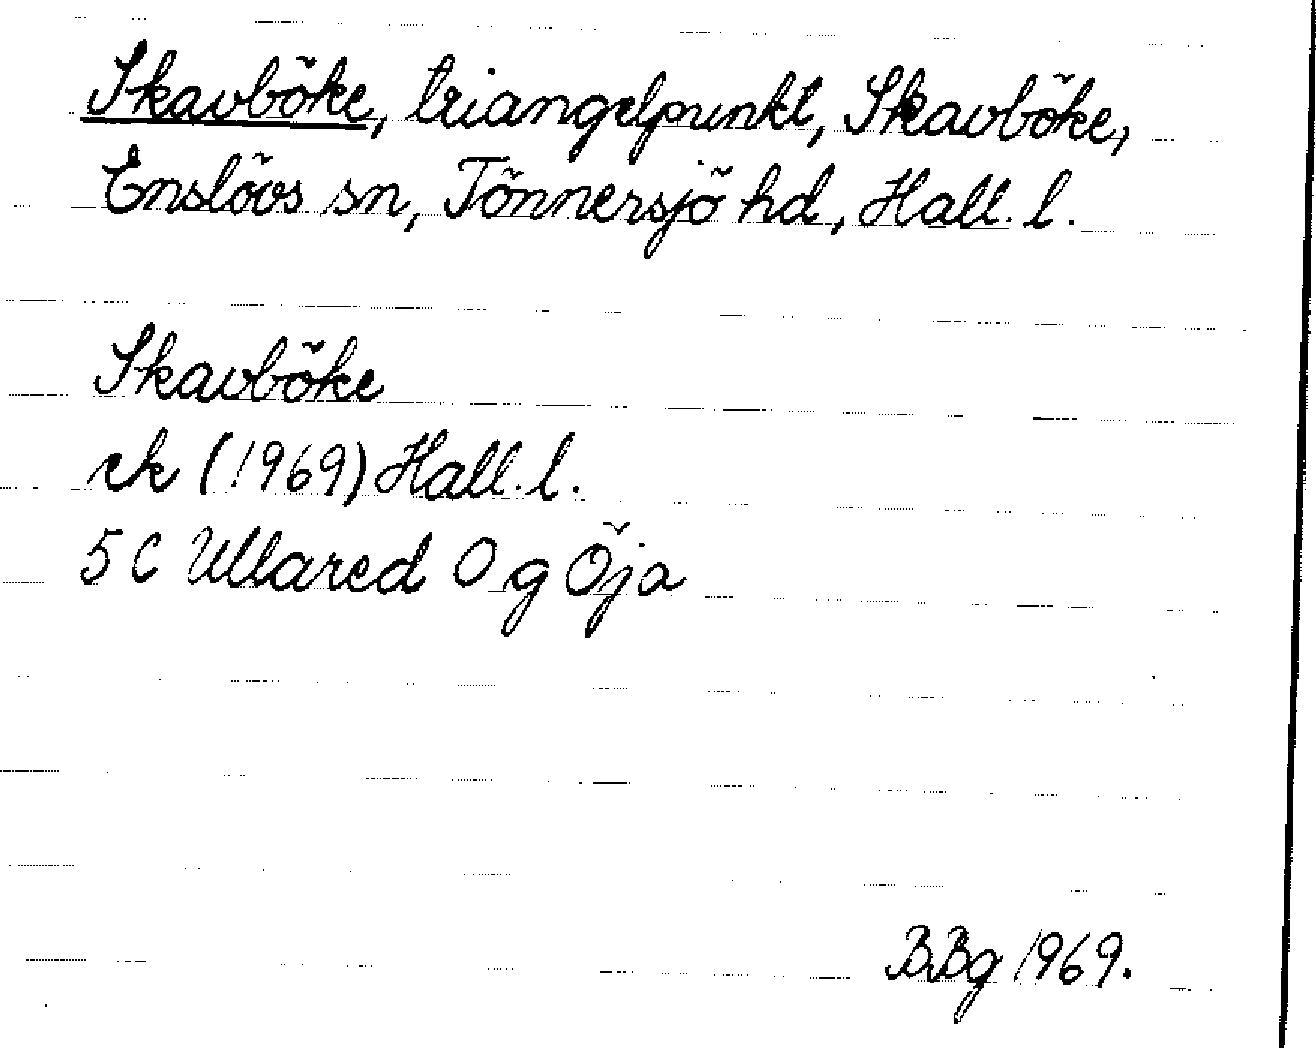 Skavböke, triangelpunkt, Skavböke,
Enslövs sn, Tönnersjö hd, Hall. l.
Skavböke
ek (1969) Hall. l.
5 C Ullared O g Öja
BBg 1969.